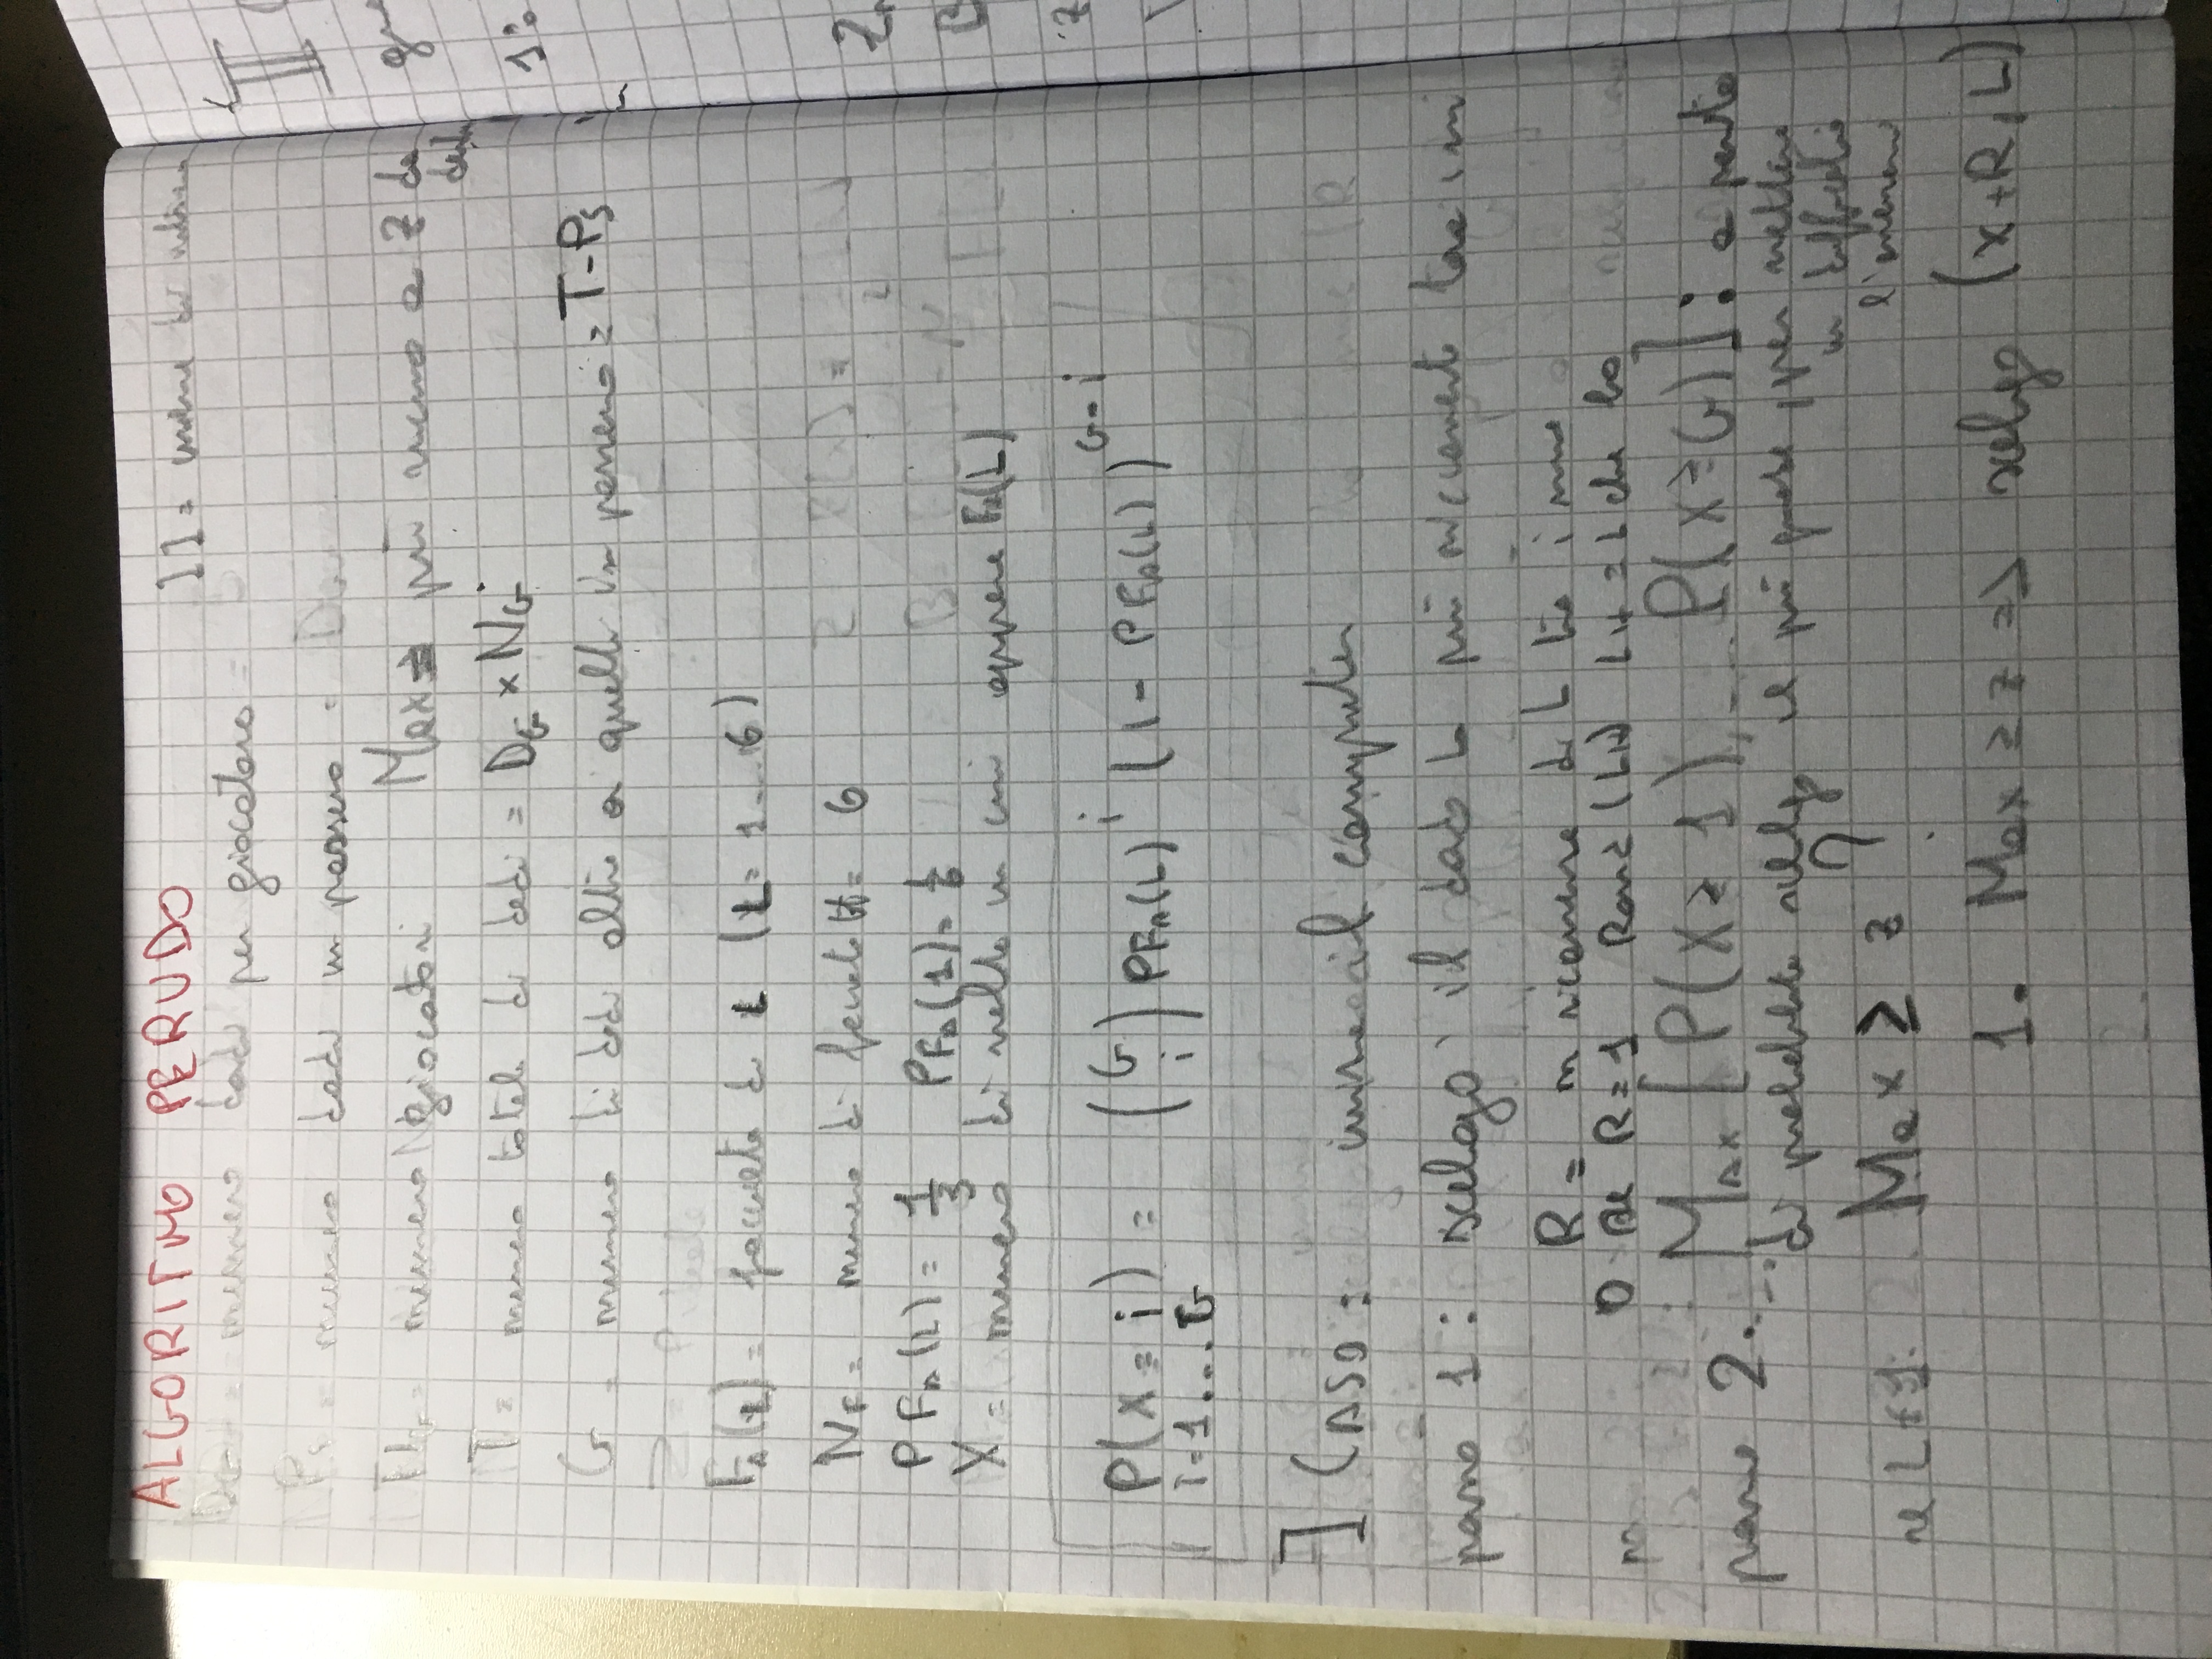 ALGORITMO PERUDO
[] = ordine di
= numero dadi per giocatore =
Ps = numero dadi in possesso =
= numero giocatori
Max = più vicino a Z da
T = numero totale di dadi = DG × NG
G = numero di dadi oltre a quelli in possesso = T-Ps
Z =
FA(L) = facciata di L (L = 1...6)
NF = numero di facciate = 6
PFA(L) = 1/3 PFA(1) = 1/6
X = numero di volte in cui appare FA(L)
P(X = i) = (G i) PFA(L)^i (1 - PFA(L))^G-i
i=1...G
I CASO: inizia il computer
passo 1: scelgo il dado L più ricorrente tra i miei
R = n ricorrenze di L tra i miei
O se R = 1 Rand (LH) LH = L che ho
passo 2. MAX [P(X ≥ 1), ... P(X ≥ G)]: a parità
di probabilità scelgo il più grande, per mettere
in difficoltà
se L≠1: Max ≥ z ?
l'avversario
1. Max ≥ z => scelgo (x+R, L)
II
1: